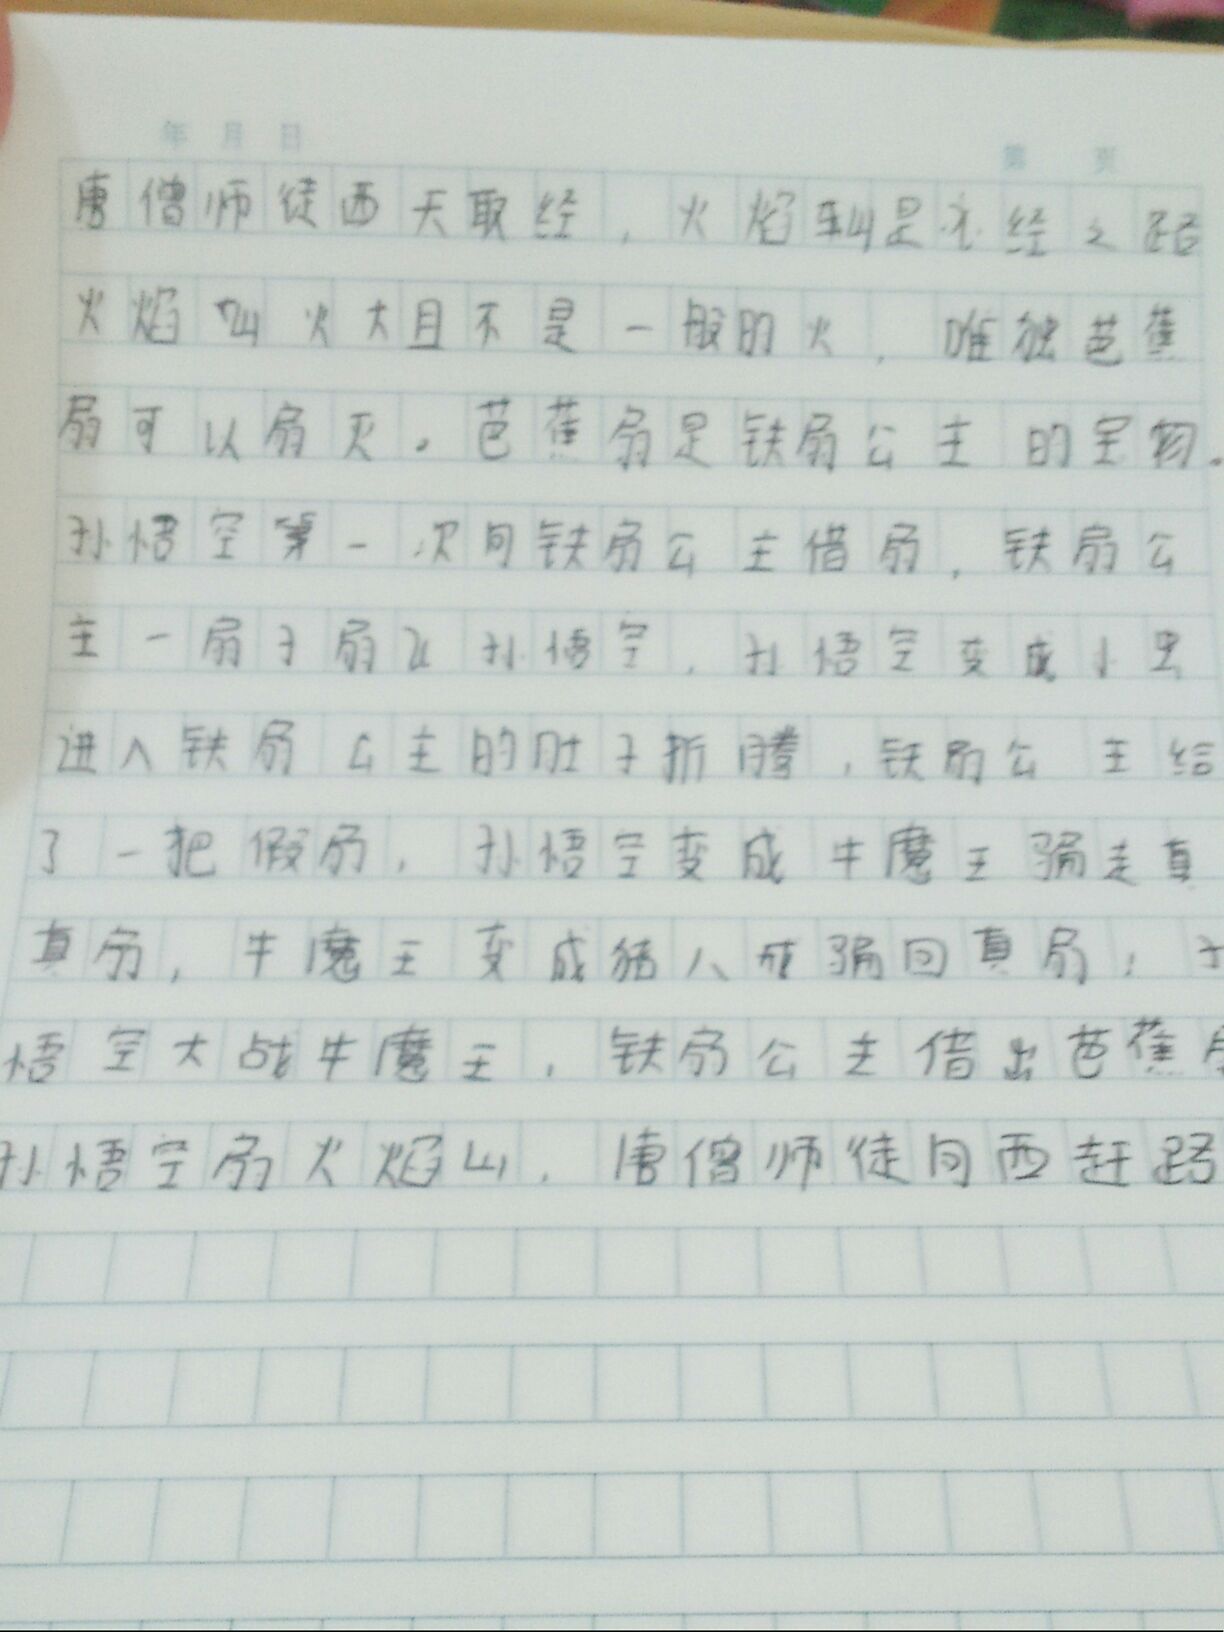 年 月 日
第 页
唐僧师徒西天取经，火焰山是必经之路
火焰山火大且不是一般的火，唯独芭蕉
扇可以扇灭。芭蕉扇是铁扇公主的宝物。
孙悟空第一次向铁扇公主借扇，铁扇公
主一扇子扇飞孙悟空，孙悟空变成小虫
进入铁扇公主的肚子折腾，铁扇公主给
了一把假扇，孙悟空变成牛魔王骗走真
真扇，牛魔王变成猪八戒骗回真扇，
悟空大战牛魔王，铁扇公主借出芭蕉
孙悟空扇火焰山，唐僧师徒向西赶路